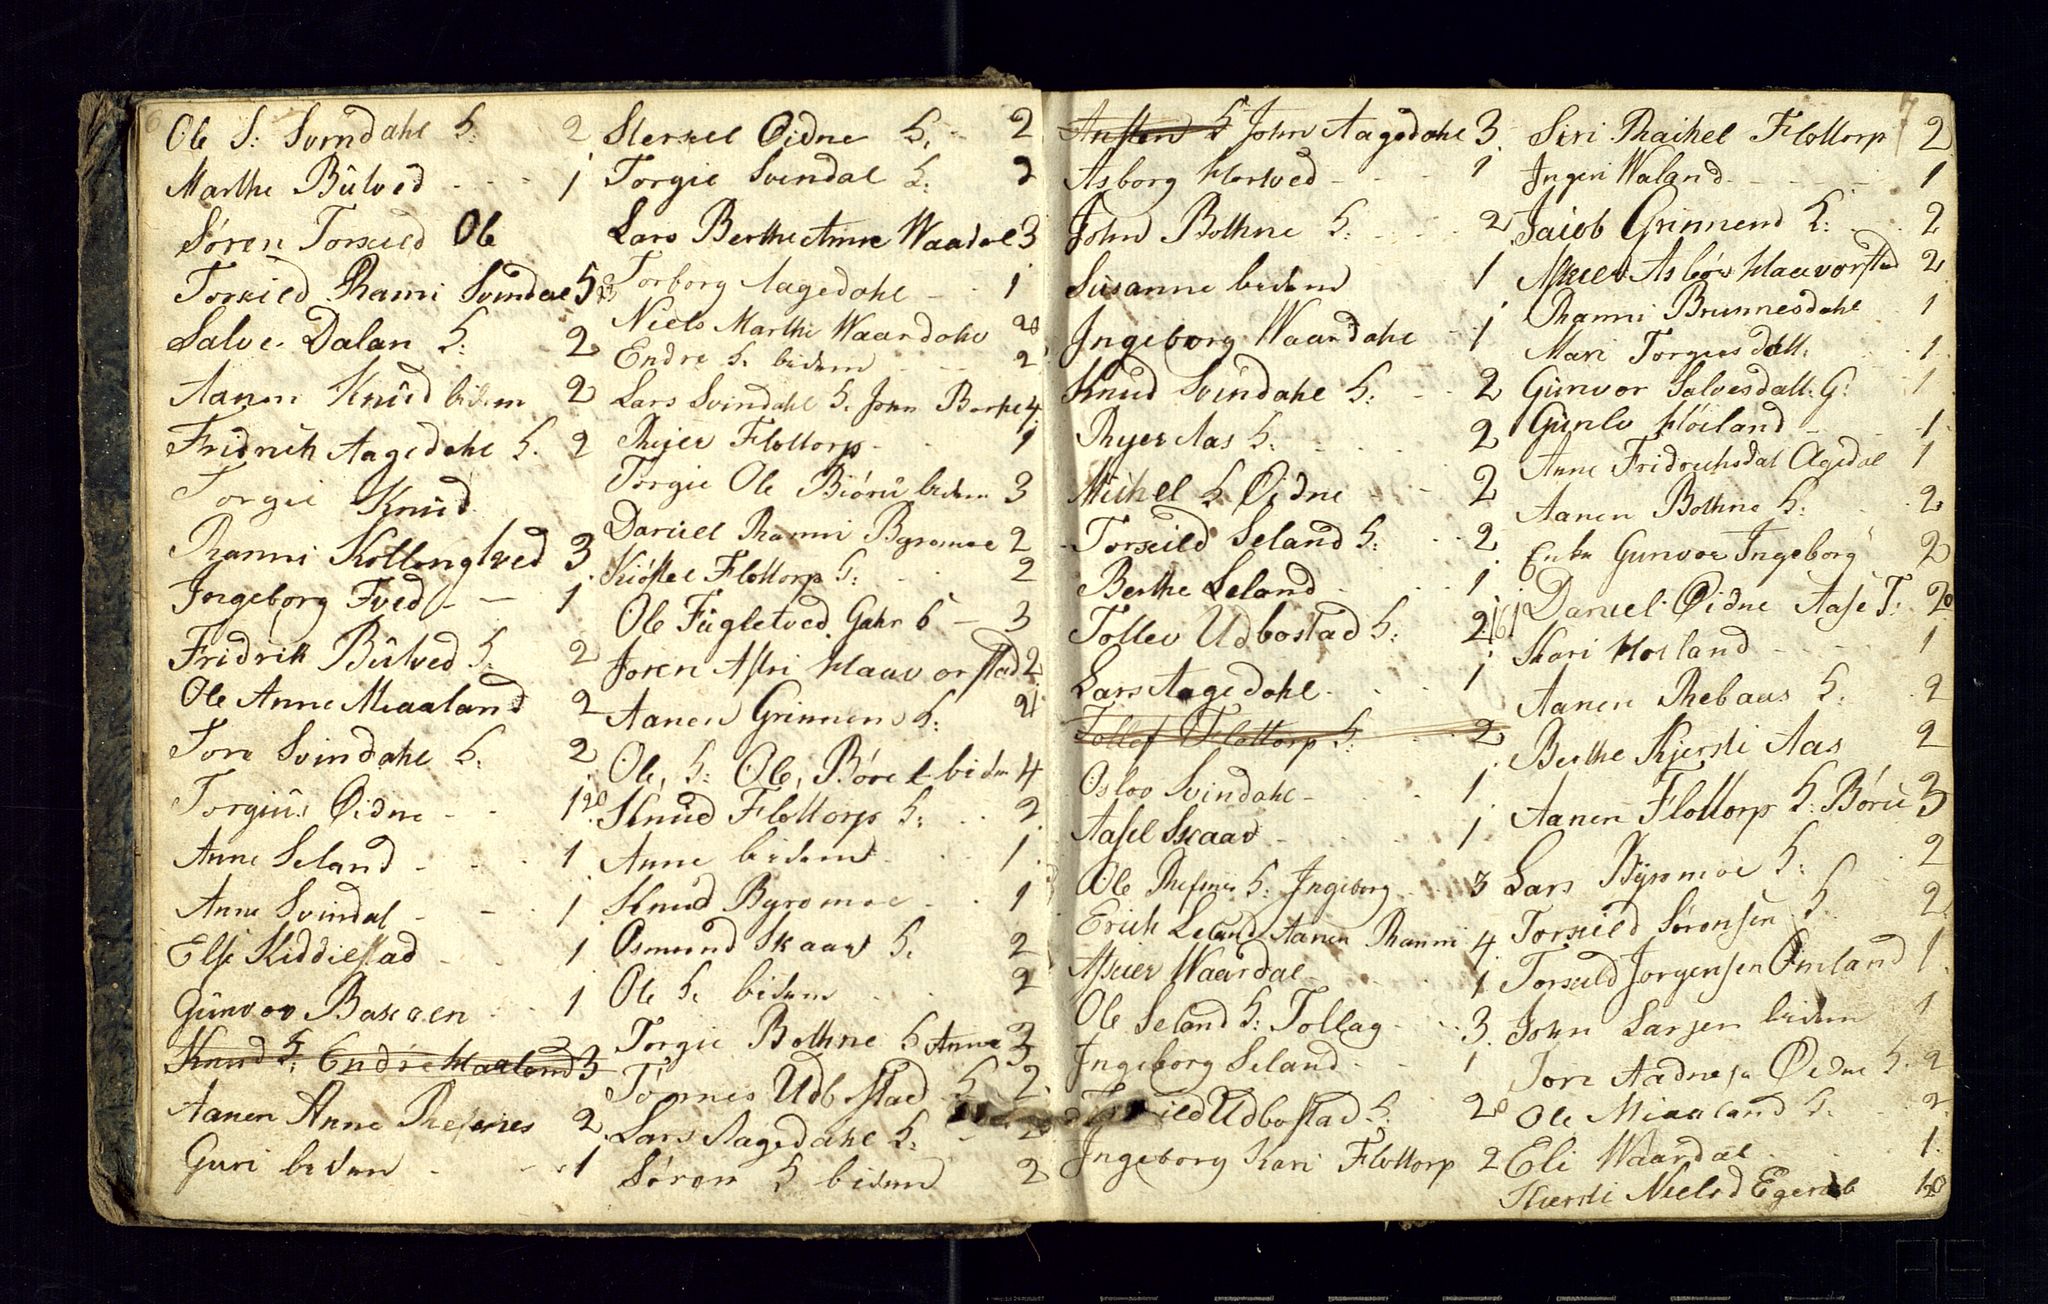 6
Ole S: Svindahl H: 2
Marthe Bûlved - - - 1
Søren Torkild Ole
Torkild Ranni Svindal 5
Salve Dalan H: 2
Aanen Knûd bidem 2
Fridrich Aagedahl H. 2
Torgie Knûd
Ranni Kollengtved 3
Ingeborg Tved - - 1
Fridrik Bûlved H. 2
Ole Anne Miaaland 2
Tore Svindahl H. 2
Torgiûs Øidne - - 1
Anne Seland - - 1
Anne Svindal - - 1
Else Kiddilstad - 1
Gûnvor Bakaen - 1
Knud H: Endre Haaland 3
Aanen Anne Refsnes 2
Guri bidem - - 1
Sterkel Øidne H. - 2
Torgie Svindal H: 2
Lars Berthe Anne Waadal 3
Torborg Aagedahl - - 1
Niels Marthe Waardahl 2
Endre H. bidem - - 2
Lars Svindahl H. John Berthe 4
Reier Flottorp - - 1
Torgie Ole Biórû bidem 3
Daniel Ranni Byremoe 2
Kióstel Flottorp H: - 2
Ole Fûgletved Gahr 6 - 3
Joren Assri Haavorstad 2
Aanen Grinnen H: 2
Ole, H: Ole, Børe bidem 4
Knûd Flottorp H: . . 2
Anne bidem - - 1
Knud Byremoe - - 1
Osmund Skaar H. 2
Ole H. bidem - - 2
Torgie Bothne H Anne 3
Tónnes Udbostad H 2
Lars Aagedahl H. - 2
Sóren H bidem 2
Austen H John Aagedahl 3
Asborg Hortved - - - 1
John Bothne H: - - - 2
Susanne bidem 1
Ingeborg Waardahl - 1
Knud Svindahl H: - - 2
Ryer Aas H. - - - 2
Michel H Øidne - - 2
Torkild Seland H: - - 2
Berthe Leland - - 1
Tollev Udbostad H: 2
Lars Aagedahl - - - 1
Tollef Flottorp H: - - 2
Oslov Svindahl - - - 1
Aasel Skaar - - - 1
Ole Refsnes H. Ingeborg - 3
Erich Leland Aanen Ranni 4
Asluer Waardal - - - 1
Ole Seland H: Tollag - - 3
Ingeborg Seland - - 1
Udbostad H: 2
Ingeborg Kari Flottorp 2
7
Siri Rachel Flottorp 2
Ingeri Waland - - - 1
Jacob Grinnend H: - - 2
Asbór Haavorstad 2
Ranni Brunnesdahl 1
Mari Torgersdatt: - - 1
Gûnvor Salvesdatt: G: 1
Gûnlv Hóiland - - 1
Anne Fridrichsdat Agedal 1
Aanen Bothne H: - - 2
Enke Gunvor Ingeborg 2
Daniel Øidne Aase T: 2
Kari Hoiland - - - 1
Aanen Rebaas H: - 2
Berthe Kjersti Aas 2
Aanen Flottorp H: Bórû 3
Lars Byremoe H: - 2
Torkild Sórensen H 2
Torkild Jorgensen Omland 1
John Larsen bidem 1
Tore Aadnesen Øidne H. 2
Ole Miaaland H: 2
Eli Waardal - - - 1
Kiersti Nielsd Egeraa 1